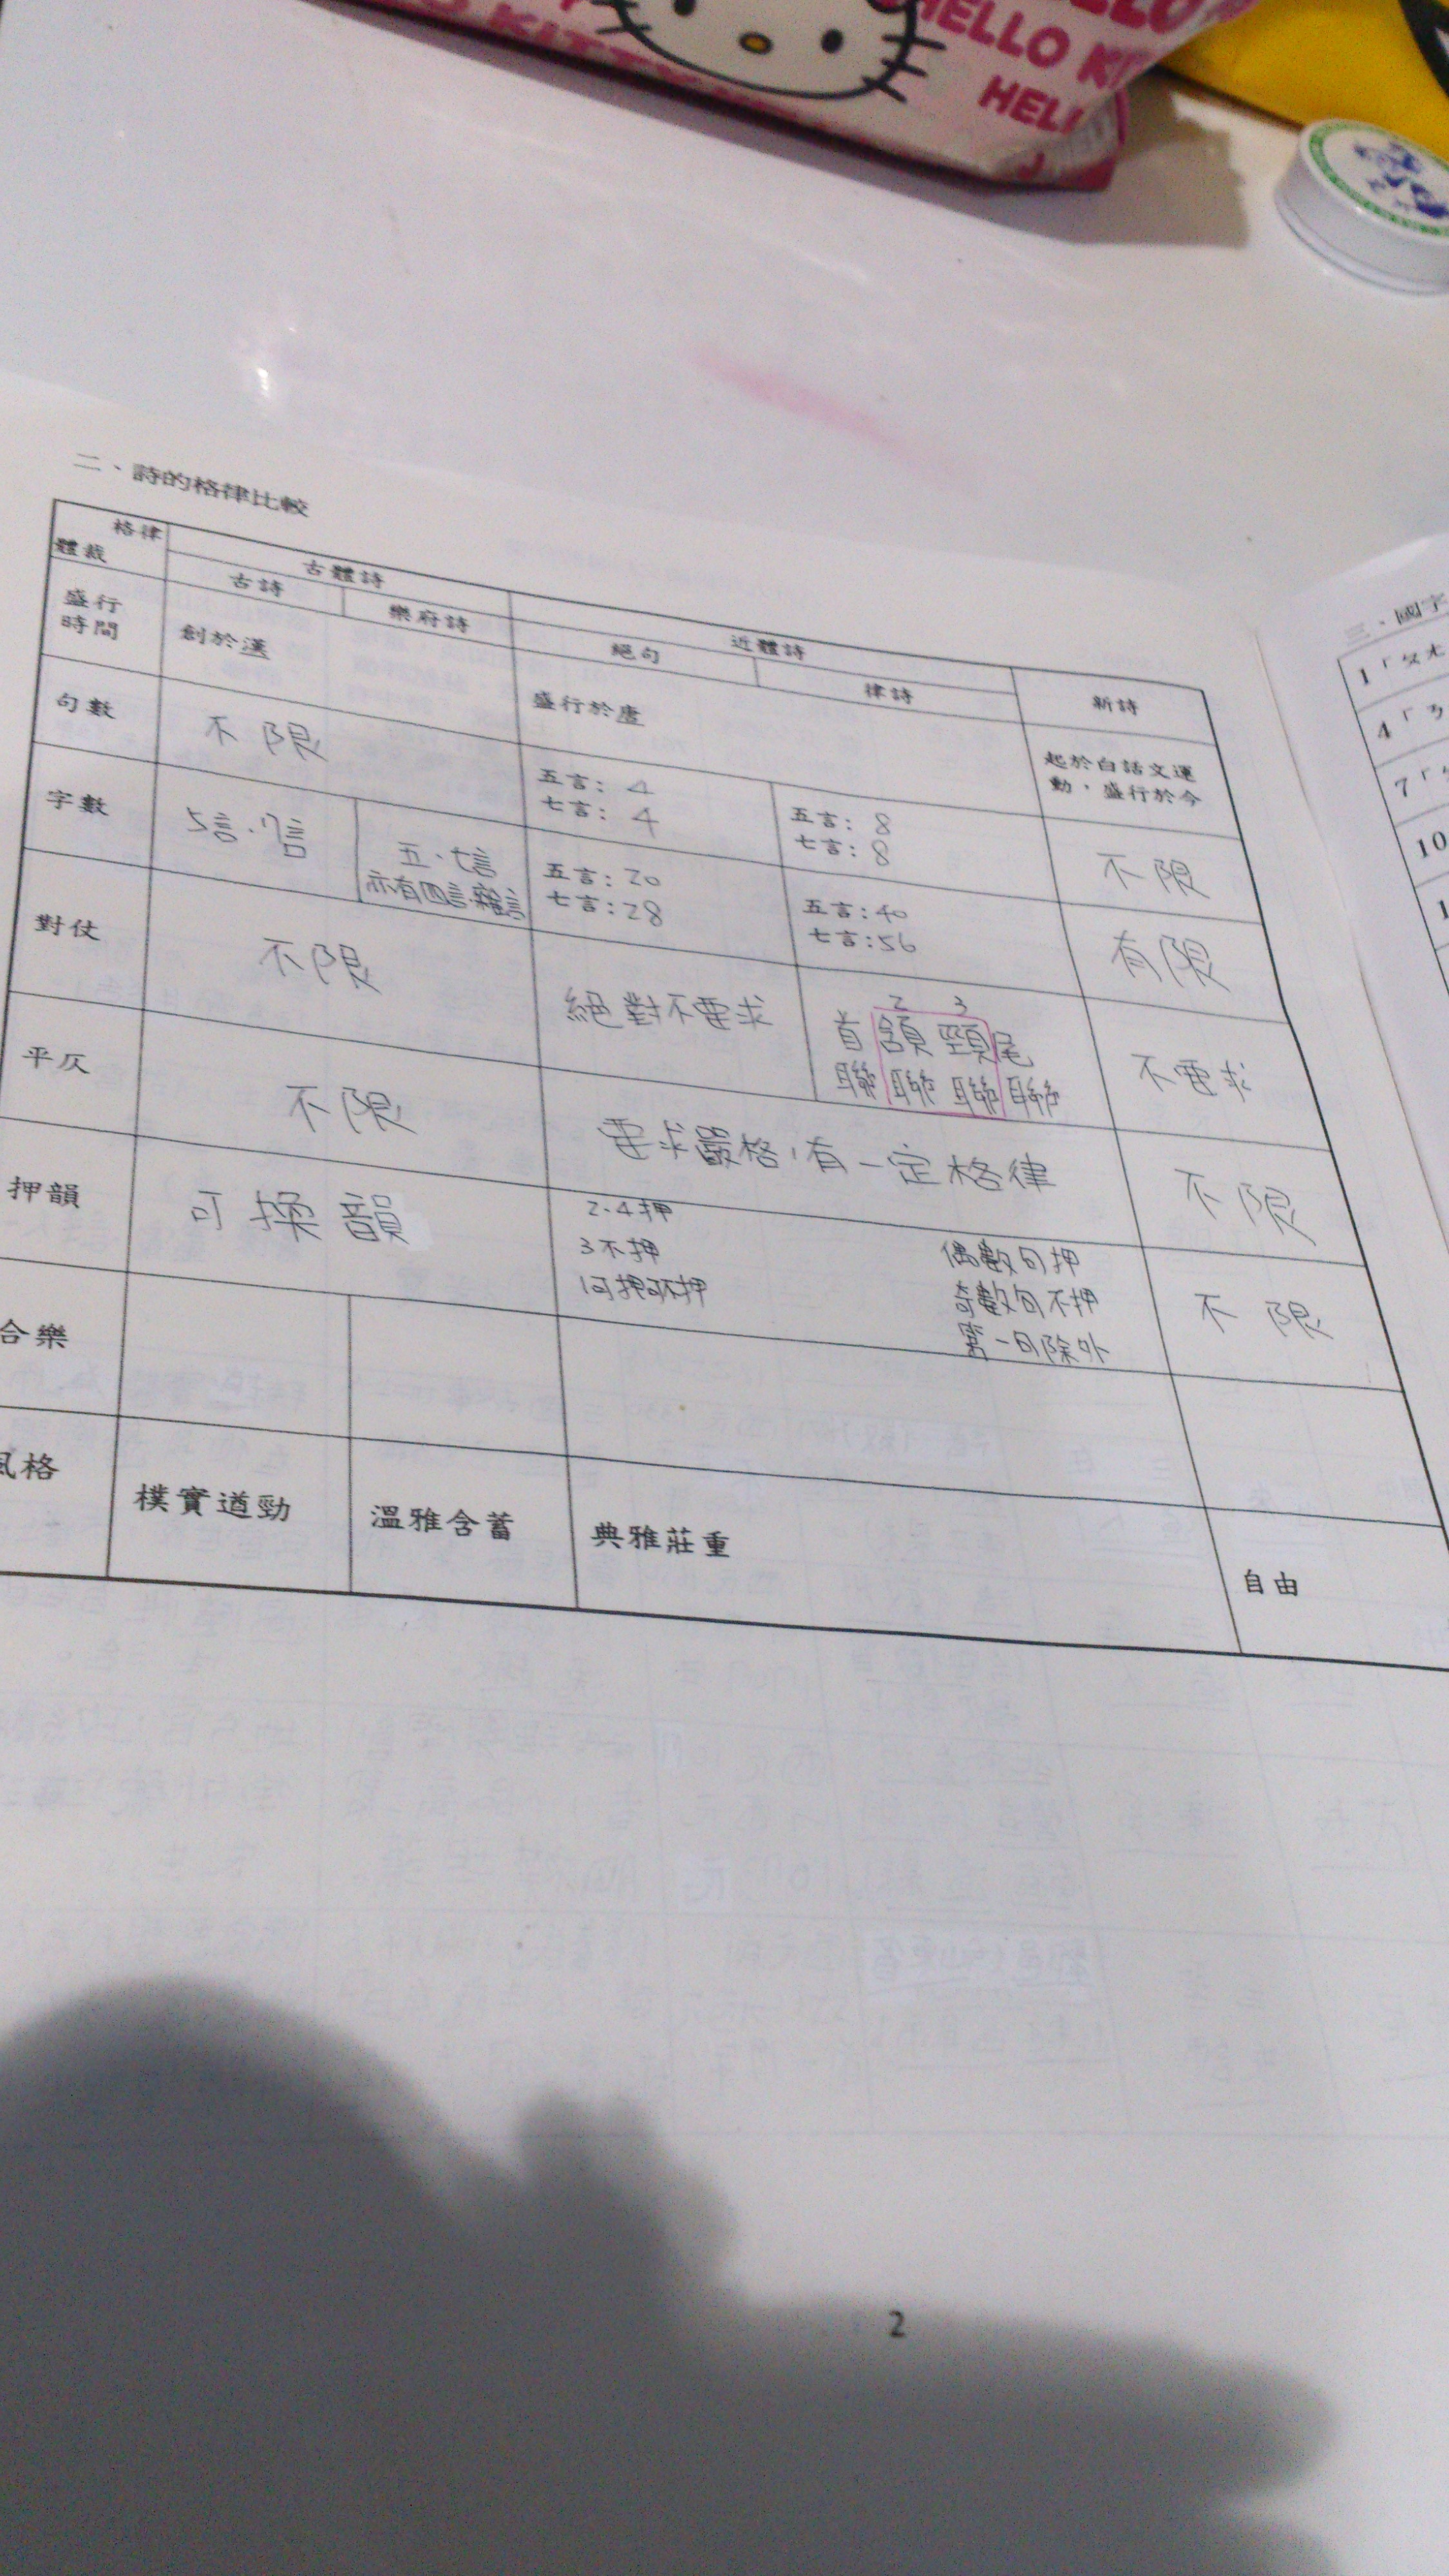 HELLO KITTY
HELLO KI
HELL
二、詩的格律比較
格律
體裁
古體詩
近體詩
新詩
古詩
樂府詩
絕句
律詩
盛行
時間
創於漢
盛行於唐
起於白話文運
動，盛行於今
句數
不限
五言：4
七言：4
五言：8
七言：8
不限
字數
5言.7言
五.七言
亦有四言.雜言
五言：20
七言：28
五言：40
七言：56
有限
對仗
不限
絕對不要求
2 3
首頷頸尾
聯聯聯聯
不要求
平仄
不限
要求嚴格，有一定格律
不限
押韻
可換韻
2.4押
3不押
1可押可不押
偶數句押
奇數句不押
第一句除外
不限
合樂
風格
樸實遒勁
溫雅含蓄
典雅莊重
自由
2
三、國字
1「ㄆㄤ
4「ㄋ
7「
10
1